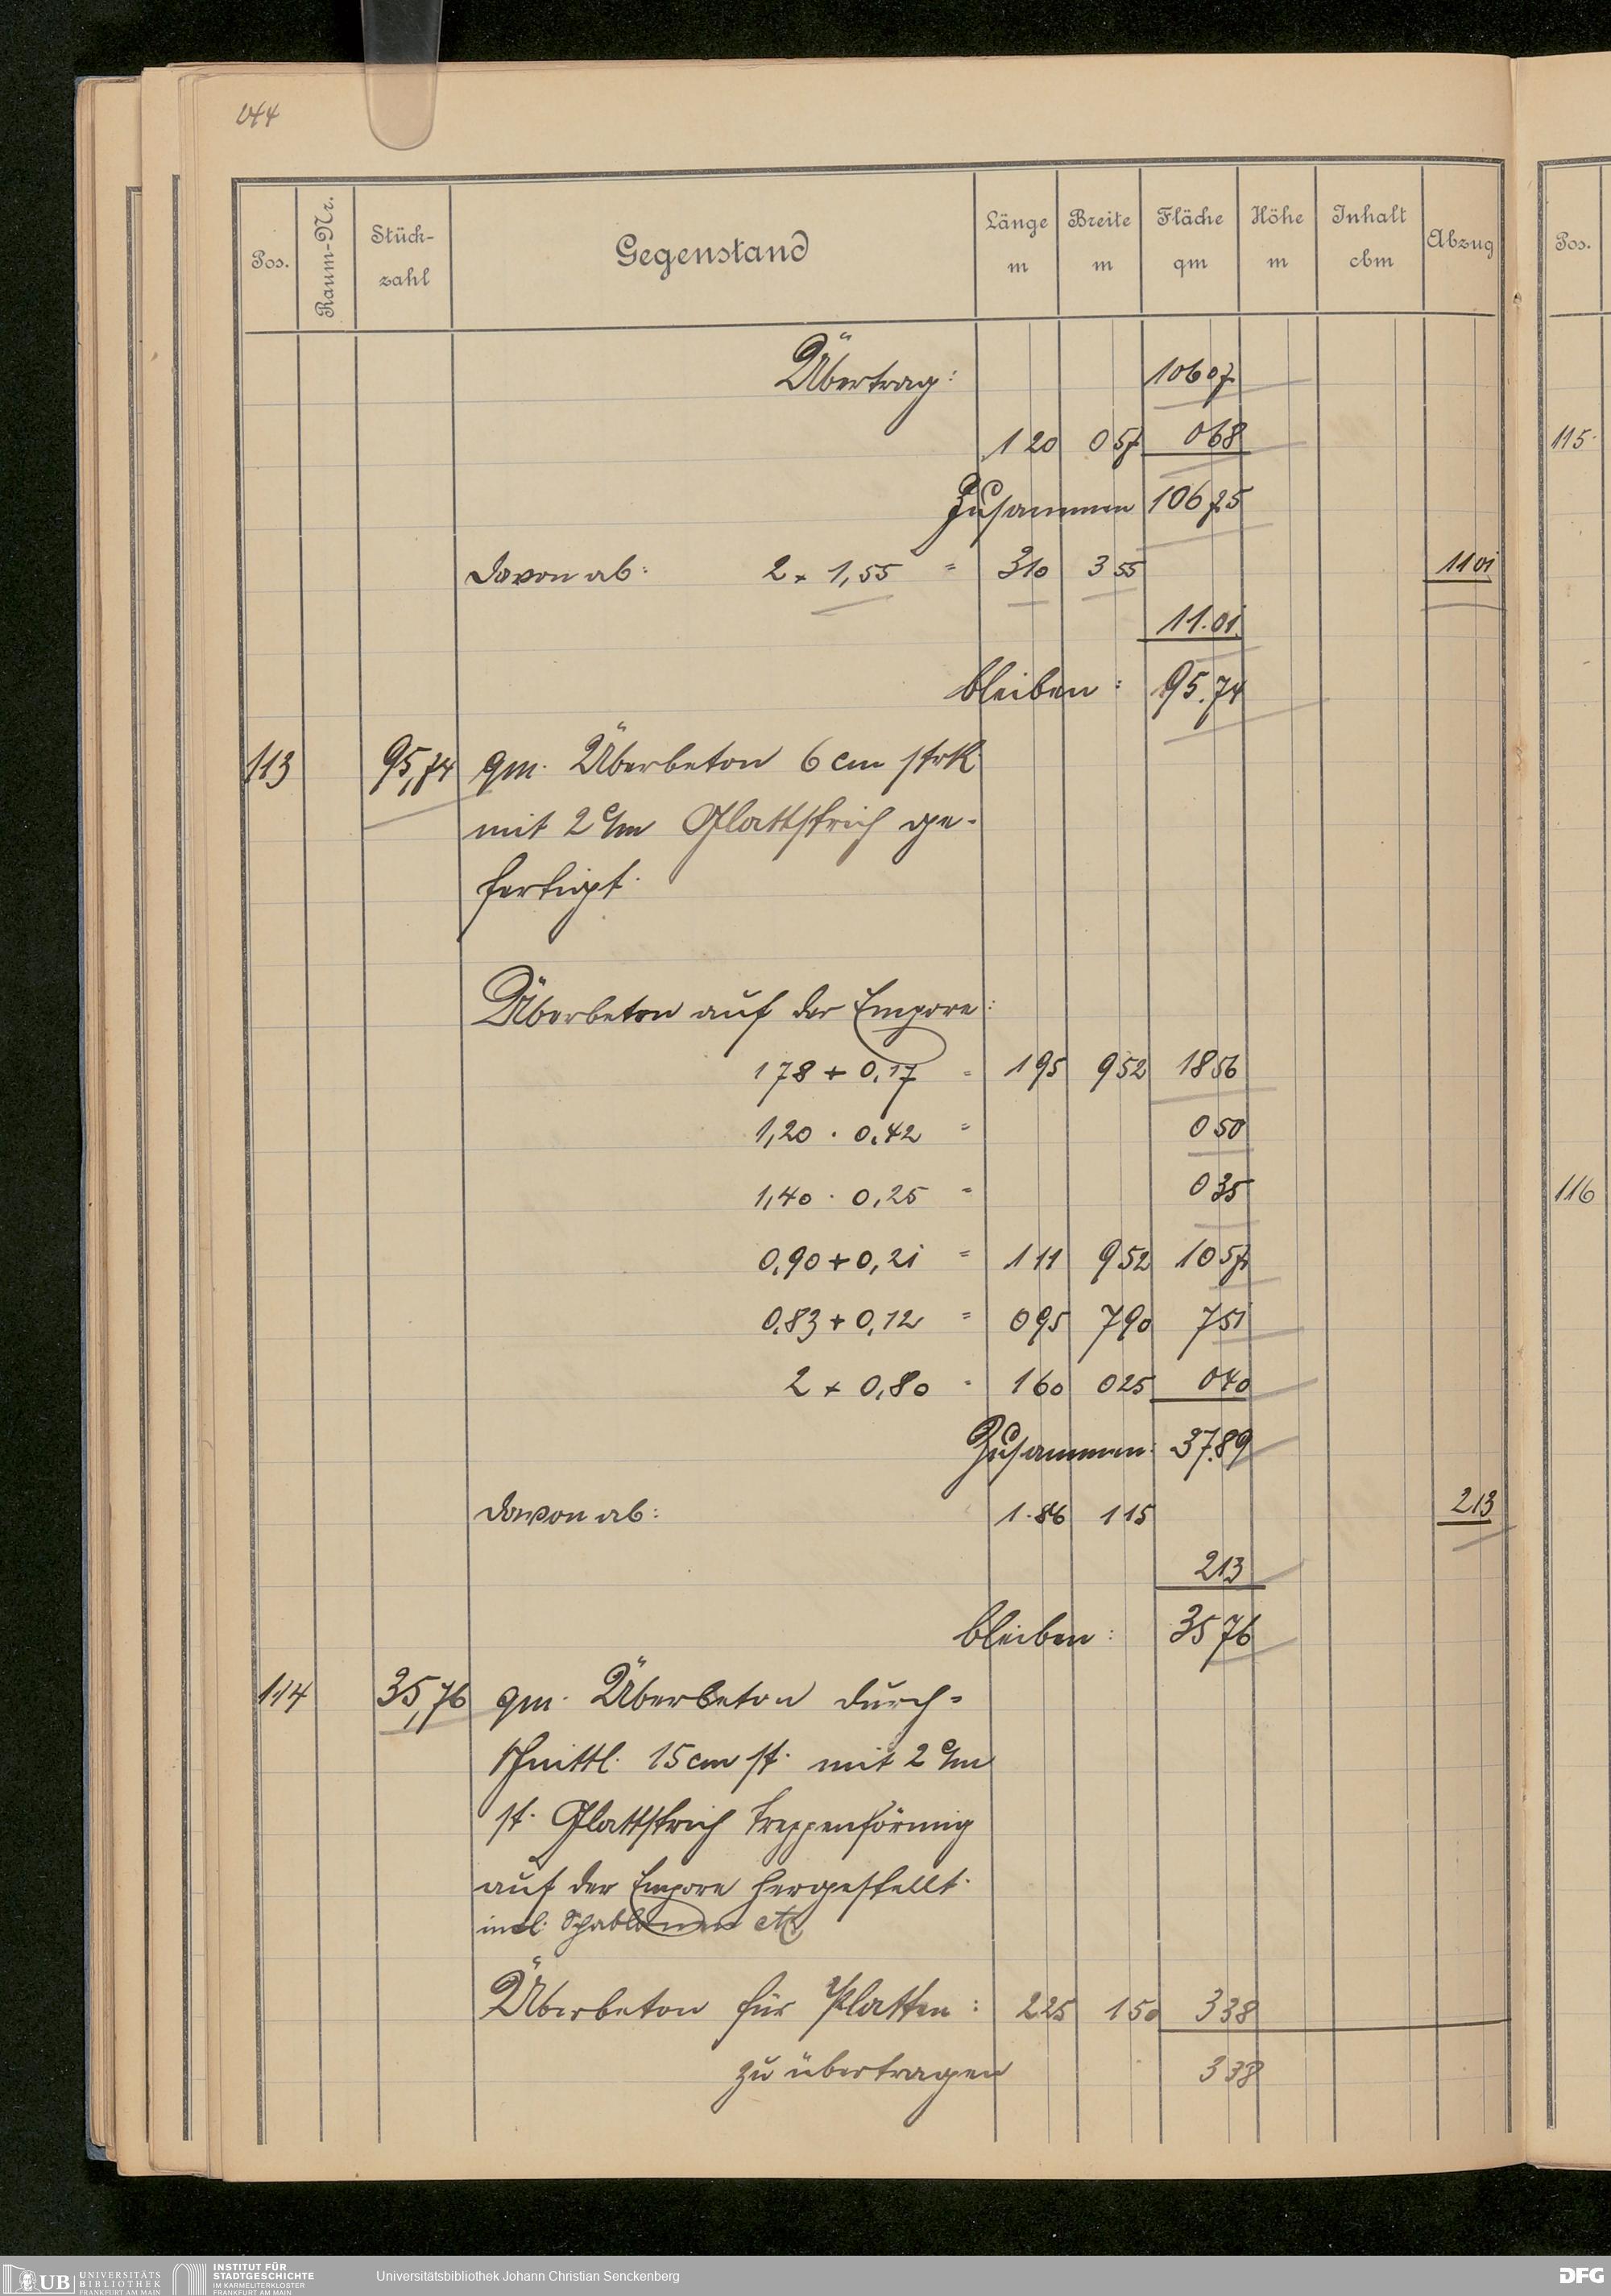 244
Pos. Raum-Nr. Stück-zahl Gegenstand Länge m Breite m Fläche qm Höhe m Inhalt cbm Abzug Pos.
Übertrag: 106 07
1 20 0 57 0 68
115
Zusammen 106 75
davon ab: 2 × 1,55 = 3 10 3 55 11 01
11.01
bleiben: 95.74
113 95,74 qm. Überbeton 6 cm strk
mit 2 c/m Glattstrich ge-
fertigt.
Überbeton auf der Empore:
1 78 + 0,17 = 1 95 9 52 18 56
1,20 · 0,42 = 0 50
1,40 · 0,25 = 0 35
116
0,90 + 0,21 = 1 11 9 52 10 57
0,83 + 0,12 = 0 95 7 90 7 51
2 × 0,80 = 1 60 0 25 0 40
Zusammen: 37.89
davon ab: 1.86 1 15 2 13
2 13
bleiben: 35 76
114 35,76 qm. Überbeton durch-
schnittl. 15 cm st. mit 2 c/m
st. Glattstrich treppenförmig
auf der Empore hergestellt.
incl. Schablonen etc.
Überbeton für Platten: 2 25 1 50 3 38
zu übertragen 3 38
UB UNIVERSITÄTS BIBLIOTHEK FRANKFURT AM MAIN
INSTITUT FÜR STADTGESCHICHTE IM KARMELITERKLOSTER FRANKFURT AM MAIN
Universitätsbibliothek Johann Christian Senckenberg
DFG